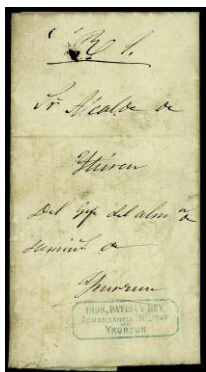 R S.
Sr Alcalde de
Ituren
Del Jefe del alm n de
sumint. de
Yrurzun
DIOS, PATRIA Y REY
COMANDANCIA MILITAR
DE
YRURZUN